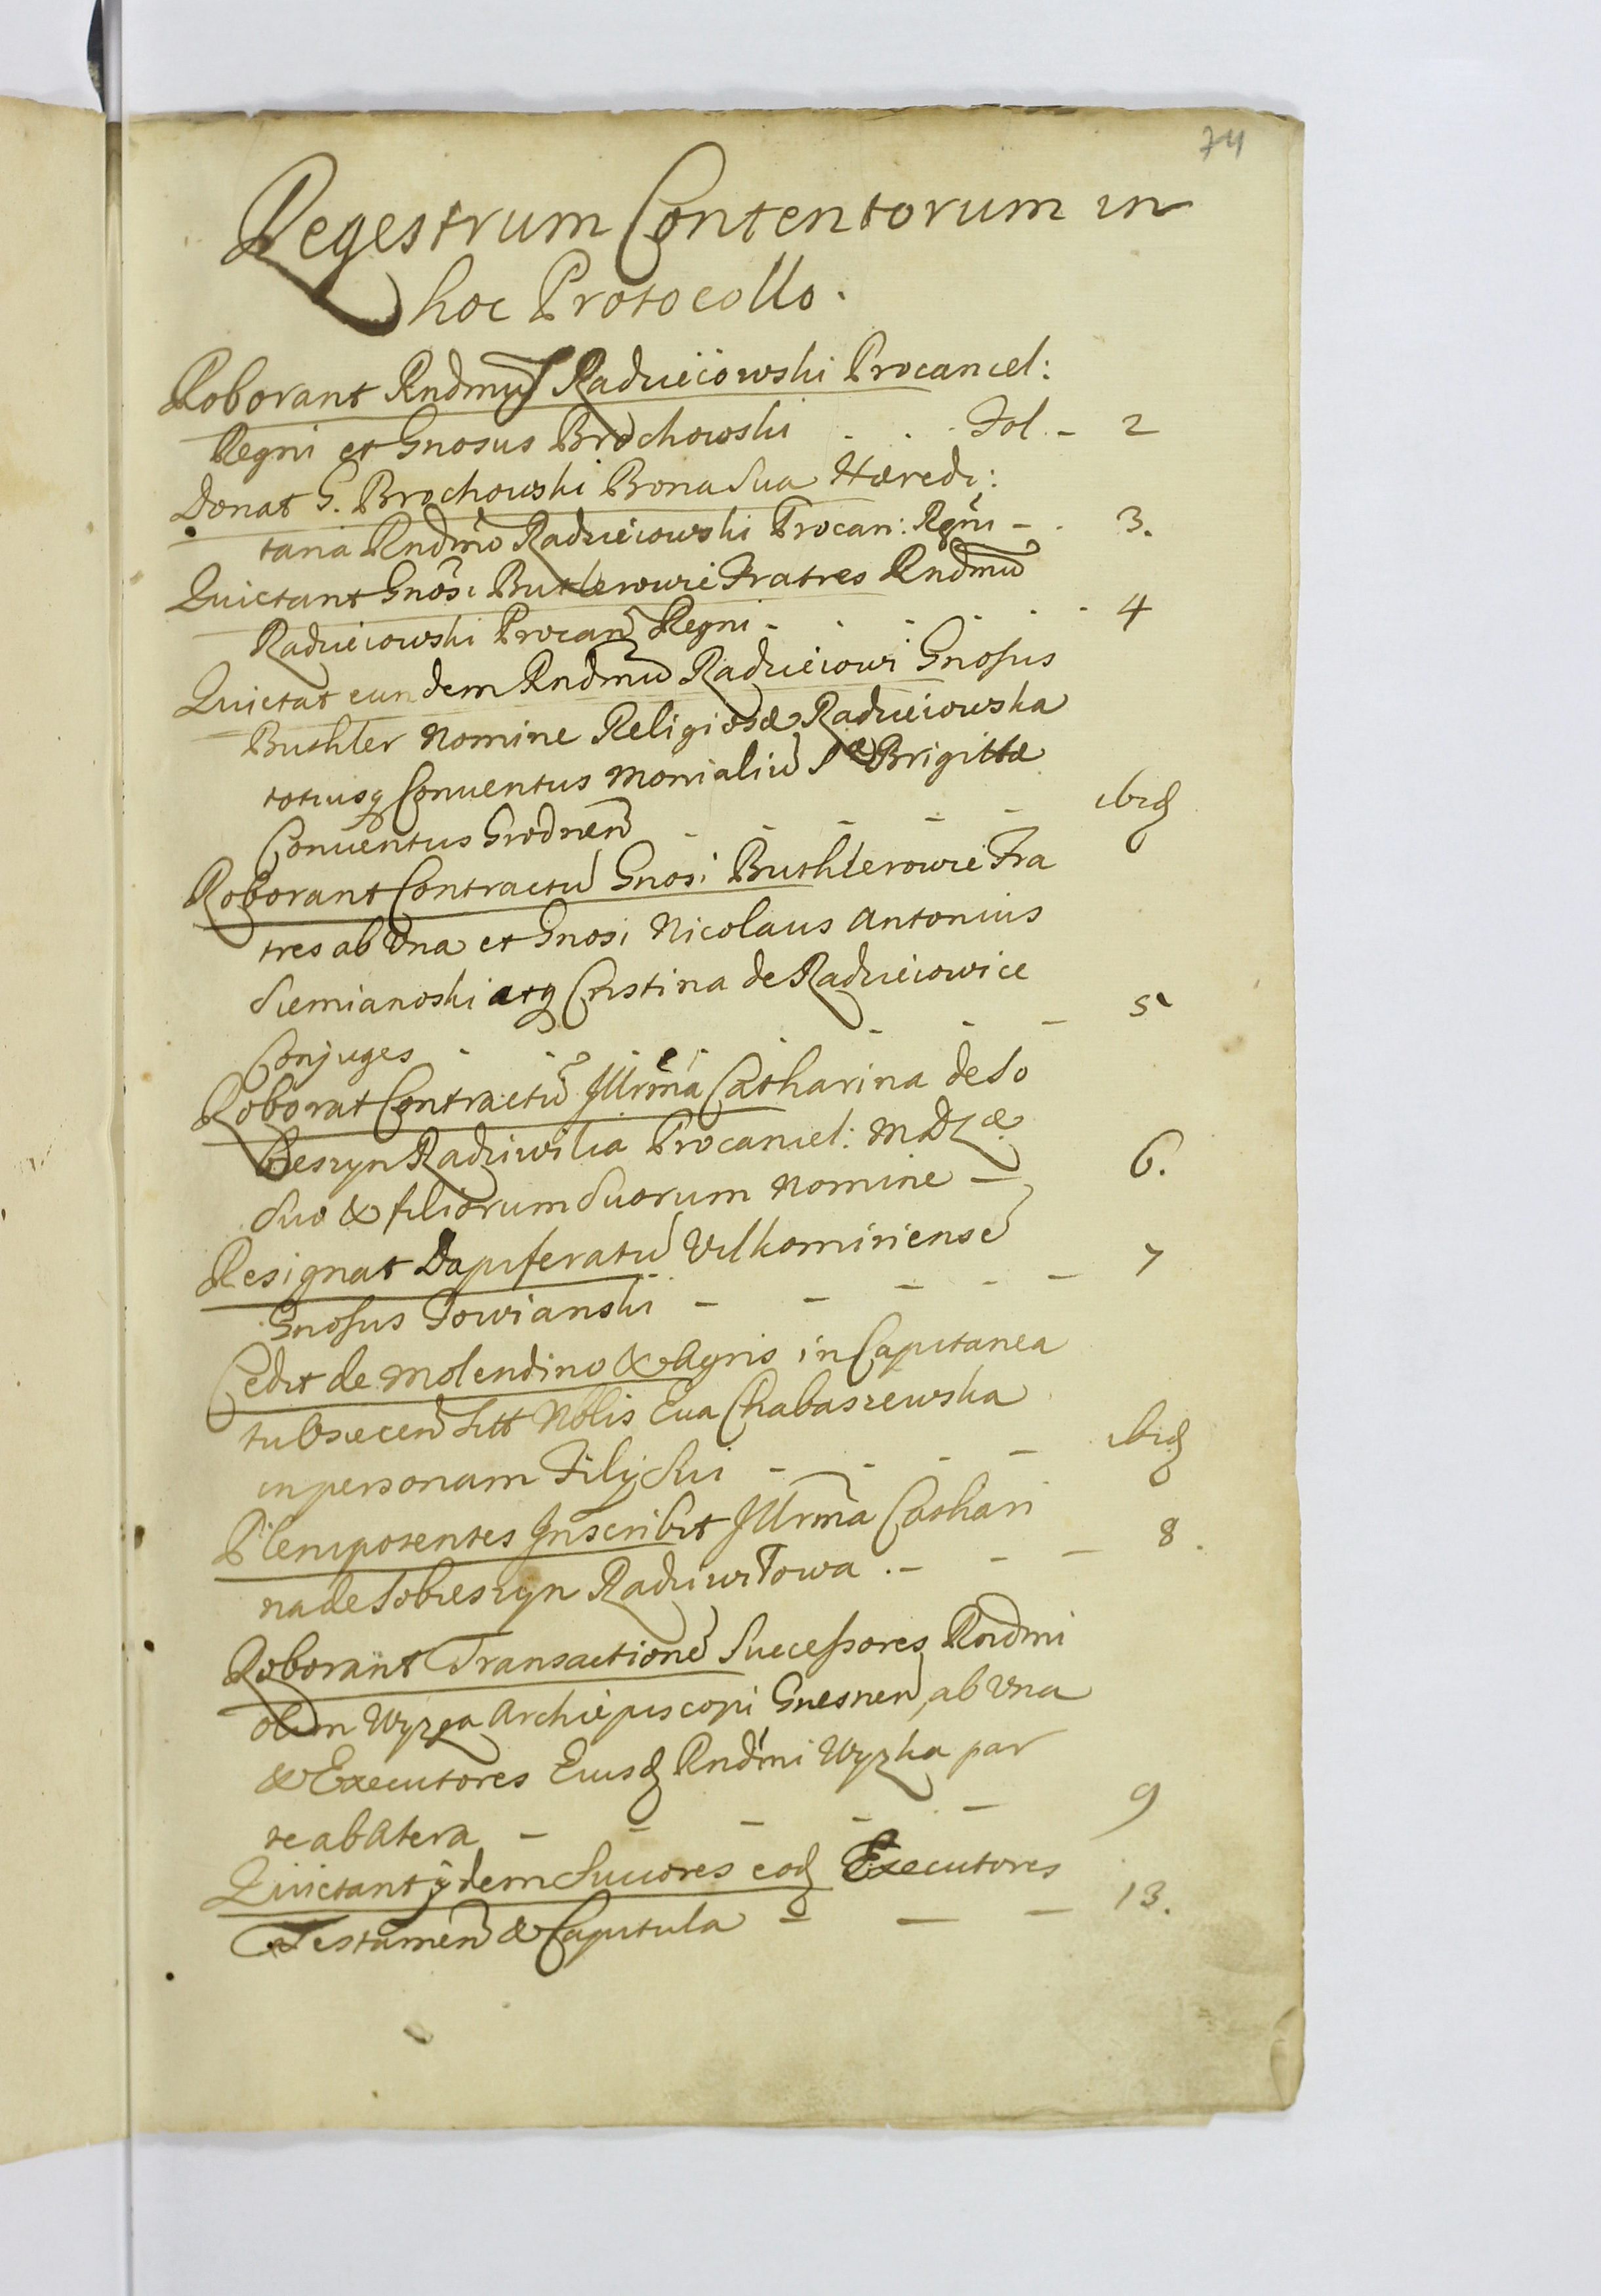 74
Regestrum Contentorum in
hoc Protocollo.
Roborant Rndmus Radzieiowski Procancel:
Regni et Gnosus Brochowski . . . Fol. - 2
Donat G. Brochowski Bona Sua Hæredi:
taria Rndmo Radzieiowski Procan: Rgni - . 3.
Quietant Gnosi Butlerowie Fratres Rndmu
Radzieiowski Procan Regni - . . - . . . 4
Quietat eundem Rndmu Radzieiowi Gnosus
Buthler Nomine Religiosæ Radzieiowska
totiusq Conventus Monialiu Sæ Brigittæ
Conventus Grodnen - - - - - ibid
Roborant Contractu Gnosi Buthlerowie Fra
tres ab Una et Gnosi Nicolaus Antonius
Siemianoski atq Cristina de Radzieiowice
Conjuges - - - - - - 5
Roborat Contractu Illrma Catharina de So
bieszyn Radziwilia Procancel: MDLæ
Suo & filiorum Suorum Nomine - 6.
Resignat Dapiferatu Vilkomiriense
Gnosus Towianski - - - - - 7
Cedit de Molendino & Agris in Capitanea
tu Osiecen Sitt Nblis Eva Chabaszewska
in personam Filij Sui - - - - ibid
Plenipotentes Inscribit Illrma Cathari
na de Sobieszyn Radziwiłowa . - - - 8.
Roborant Transactione Successores Rndmi
olim Wyzga Archiepiscopi Gnesnen, ab Una
& Executores Eiusd Rndmi Wyzka par
te ab Altera - - - - - 9
Quietant ijdem Succores eod Executores
Testamen & Capitula - - - 13.